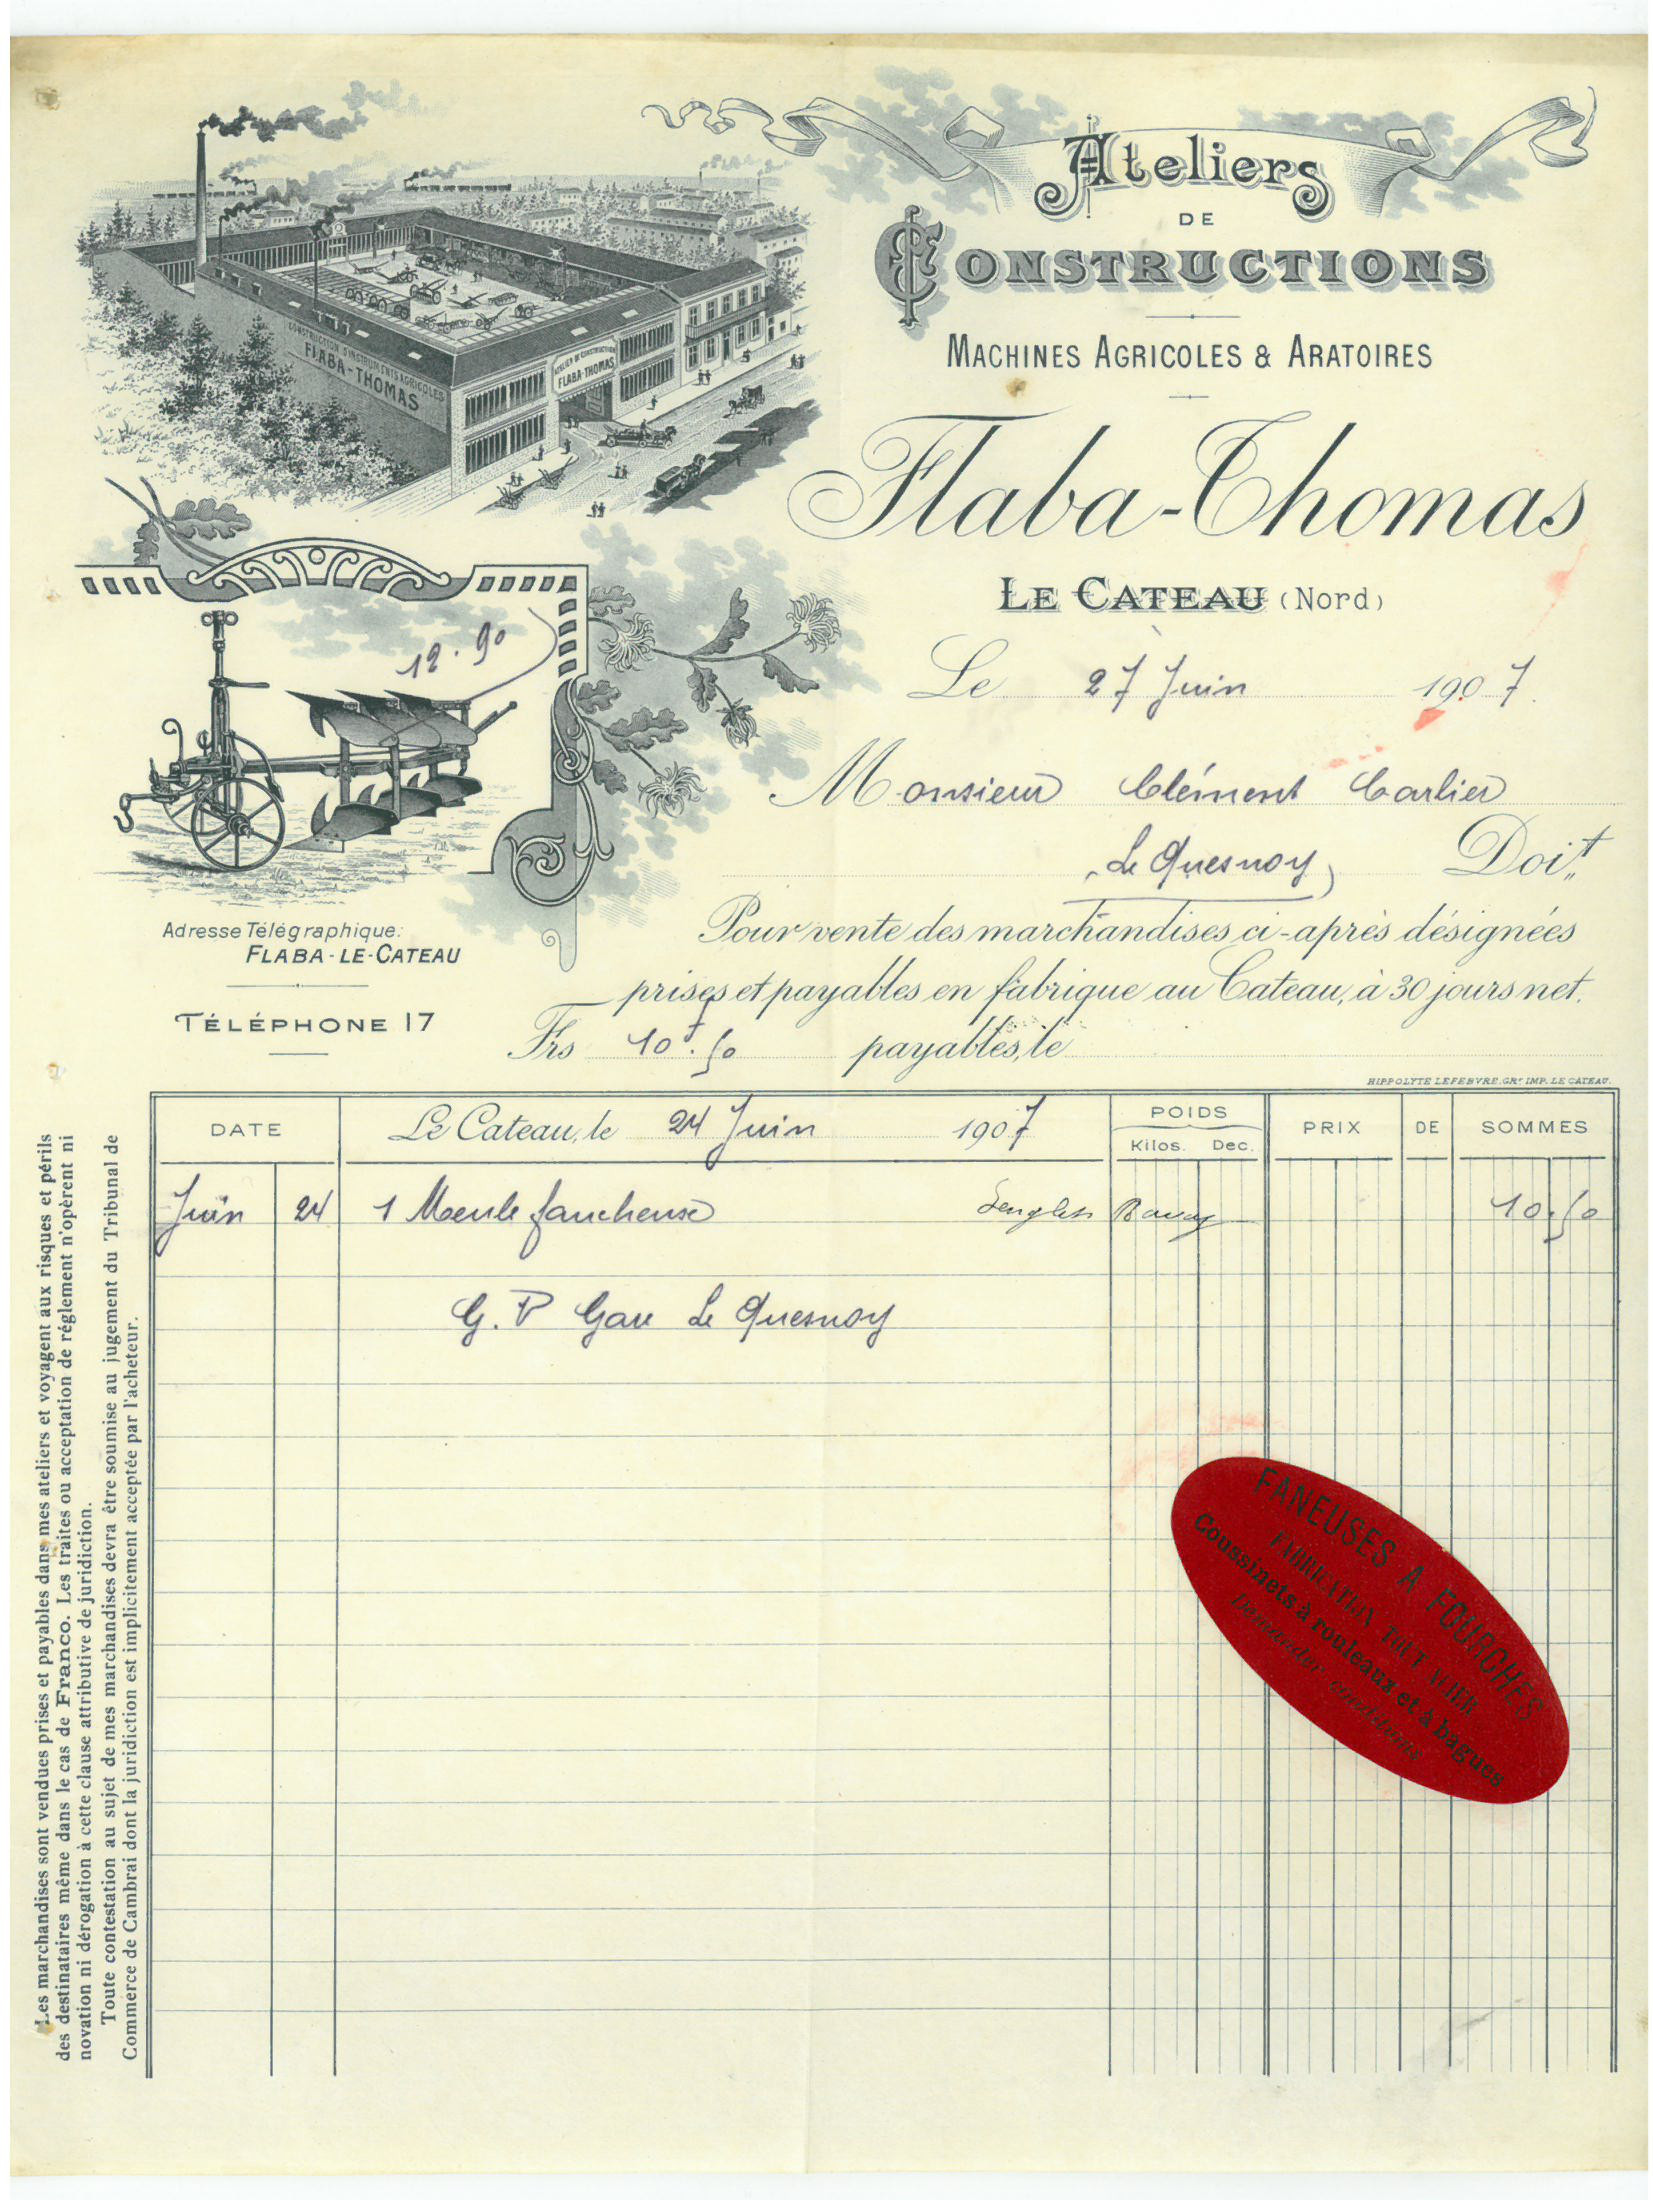 Ateliers
DE
CONSTRUCTIONS
MACHINES AGRICOLES & ARATOIRES
Flaba-Thomas
LE CATEAU (Nord)
CONSTRUCTION D'INSTRUMENTS AGRICOLES
FLABA-THOMAS
ATELIER DE CONSTRUCTION
FLABA-THOMAS
12.90
Le 27 Juin 1907.
Monsieur Clément Carlier
Le Quesnoy Doit
Adresse Télégraphique:
FLABA-LE-CATEAU
TÉLÉPHONE 17
Pour vente des marchandises ci-après désignées
prises et payables en fabrique au Cateau, à 30 jours net.
Frs 10f.50 payables, le
HIPPOLYTE LEFEBVRE, GRr IMP. LE CATEAU.
DATE Le Cateau, le 24 Juin 1907 POIDS Kilos. Dec. PRIX DE SOMMES
Juin 24 1 Meule faucheuse Bavay 10.50
G.V Gare Le Quesnoy
FANEUSES A FOURCHES
FABRICATION TOUT ACIER
Coussinets à rouleaux et à bagues
Demander conditions
Les marchandises sont vendues prises et payables dans mes ateliers et voyagent aux risques et périls
des destinataires même dans le cas de Franco. Les traites ou acceptation de réglement n'opèrent ni
novation ni dérogation à cette clause attributive de juridiction.
Toute contestation au sujet de mes marchandises devra être soumise au jugement du Tribunal de
Commerce de Cambrai dont la juridiction est implicitement acceptée par l'acheteur.